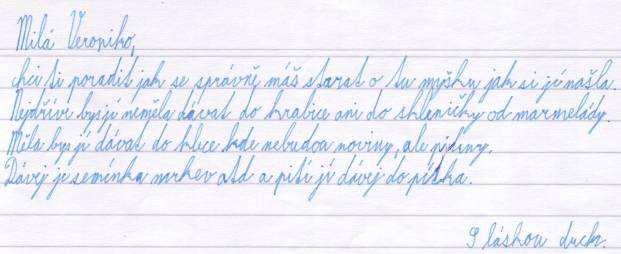 Milá Veroniko,
chci ti poradit jak se správně máš starat o tu myšku jak si jí našla.
Nejdříve bys jí neměla dávat do krabice ani do skleničky od marmelády.
Měla bys jí dávat do klece kde nebudou noviny, ale piliny.
Dávej je semínka mrkev atd a pití jí dávej do pítka.
S láskou duch.